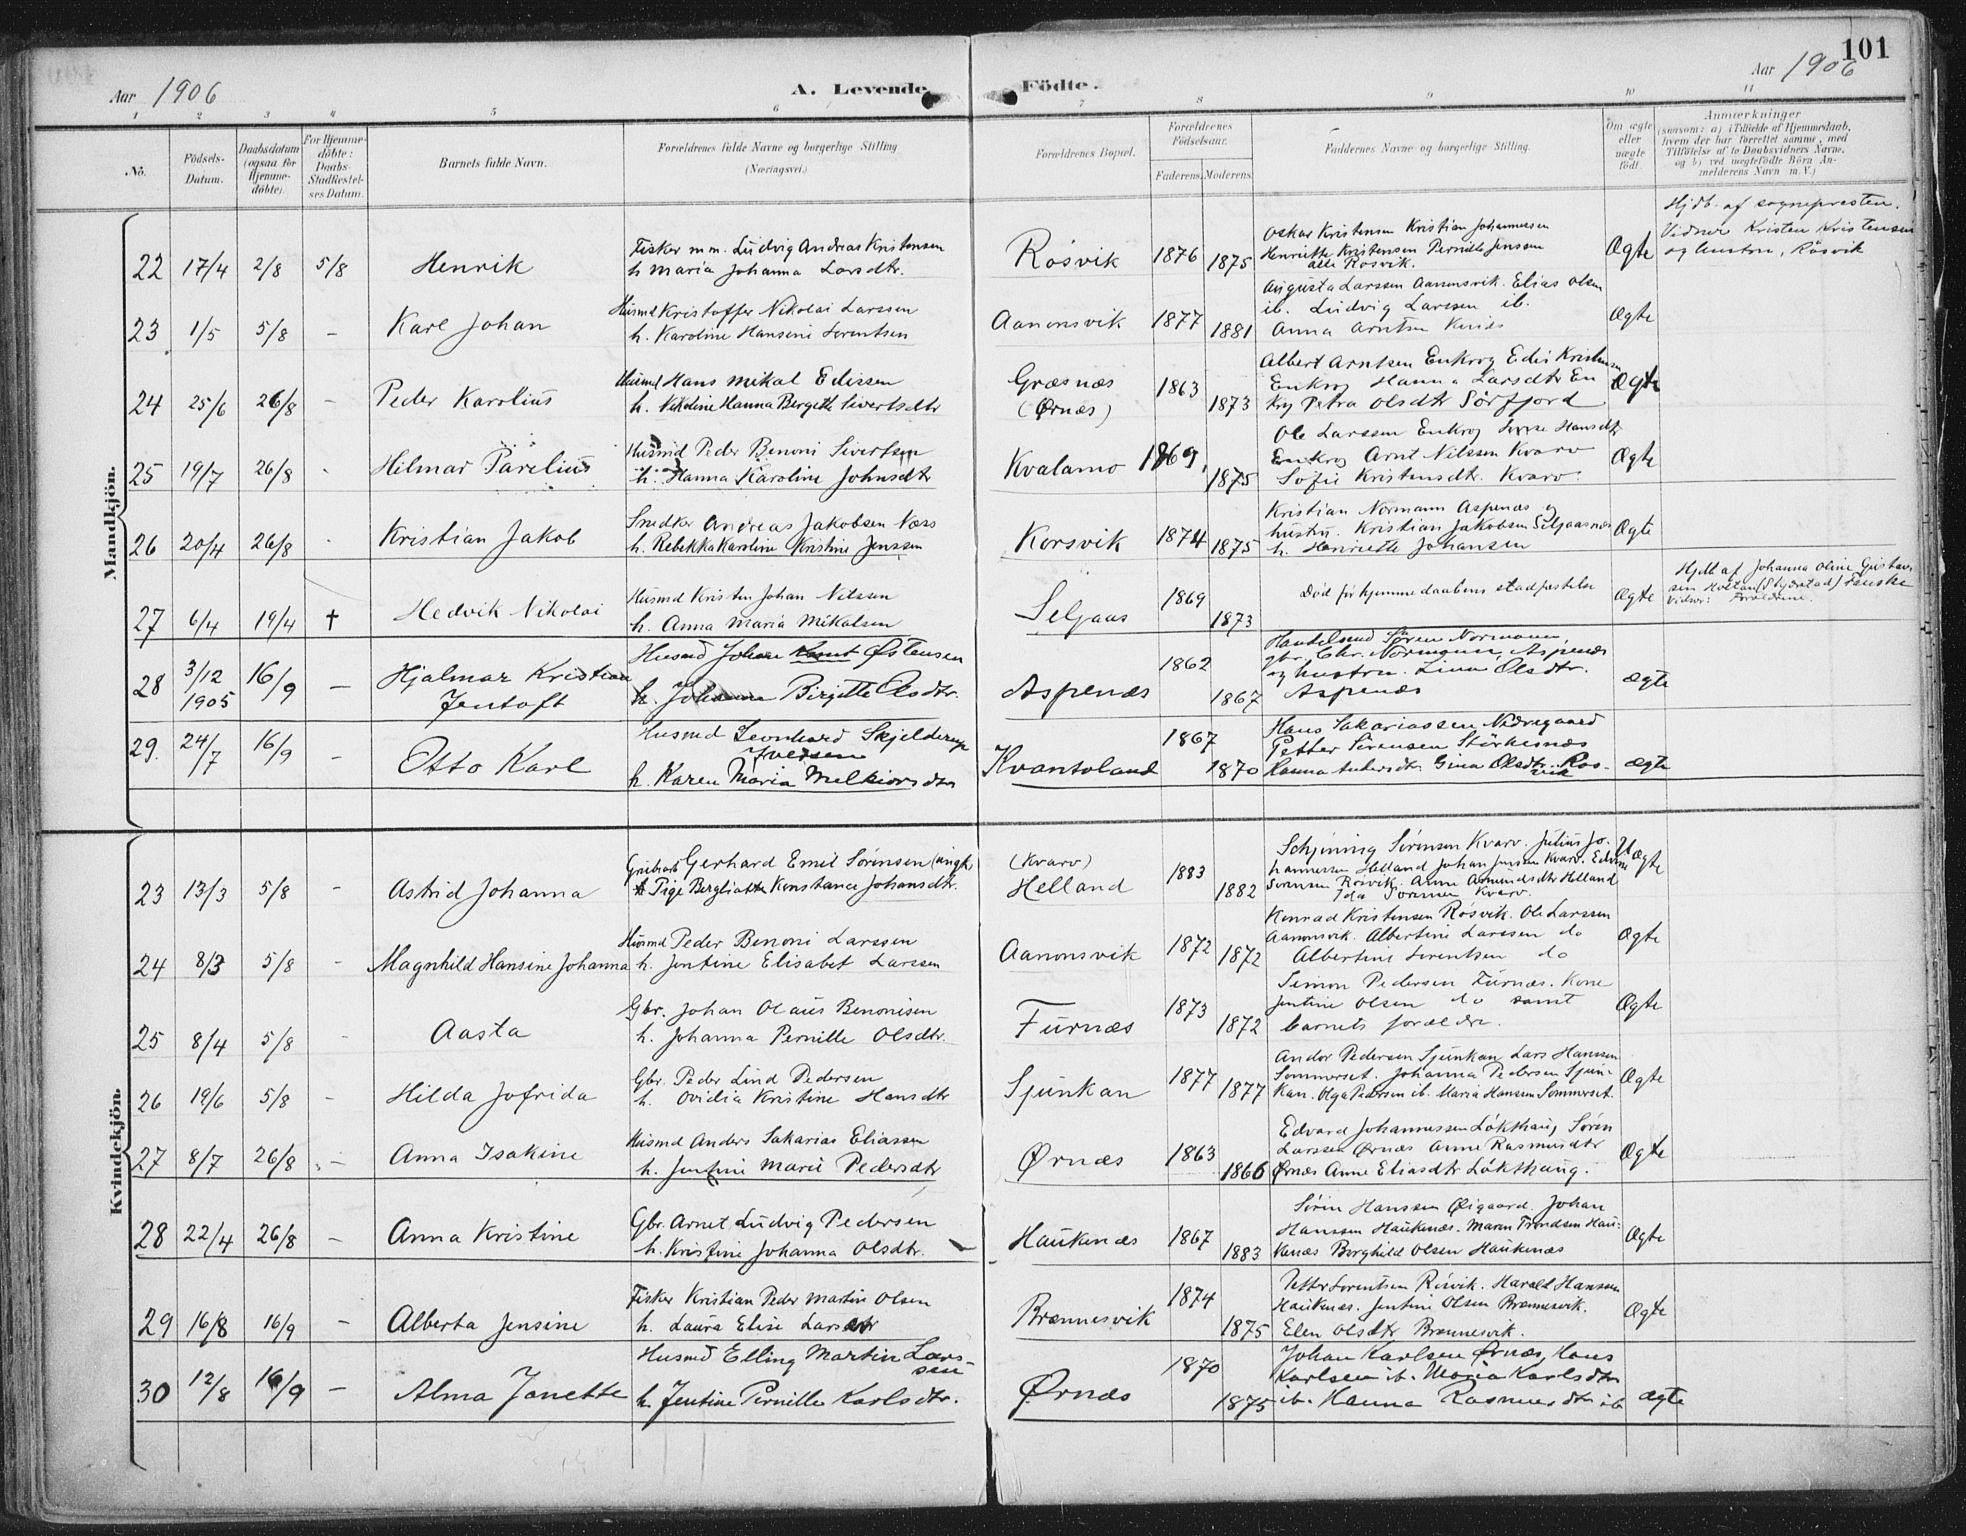 101
Aar 1906
A. Levende Födte.
Aar 1906
1 2 3 4 5 6 7 8 9 10 11
No.
Födsels-
Datum.
Daabsdatum
(ogsaa for
Hjemme-
döbte).
For Hjemme-
döbte:
Daabs-
Stadfæstel-
ses Datum.
Barnets fulde Navn.
Forældrenes fulde Navne og borgerlige Stilling
(Næringsvei.)
Forældrenes Bopæl.
Forældrenes
Födselsaar.
Faderens. Moderens.
Faddernes Navne og borgerlige Stilling.
Om ægte
eller
uægte
födt.
Anmærkninger
(saasom: a) i Tilfælde af Hjemmedaab,
hvem der har forrettet samme, med
Tilföielse af to Daabsvidners Navne,
og b) ved uægtefödte Börn An-
melderens Navn m. V.)
Mandkjön.
22 17/4 2/8 5/8 Henrik
Fisker m.m. Ludvig Andreas Kristensen
h. Maria Johanna Larsdtr.
Rösvik 1876 1875
Oskar Kristensen Kristian Johannessen
Henriette Kristensen Pernille Jenssen
alle Rösvik.
Ægte
Hjdb. af sognepresten.
Vidner Kristen Kristensen
og hustru, Rösvik
23 1/5 5/8 – Karl Johan
Husmd Kristoffer Nikolai Larssen
h. Karoline Hansine Sorentsen
Aanonsvik 1877 1881
Augusta Larssen Aanonsvik. Elias Olsen
ib. Ludvig Larssen ib.
Anna Arntsen
Ægte
24 25/6 26/8 – Peder Karolius
Husmd Hans Mikal Edissen
h. Nikoline Hanna Bergitte Sivertsdtr
Græsnæs
(Ørnæs)
1863 1873
Albert Arntsen Enkrog Edis Kristensen
Enkrog Hanna Larsdtr En
krg Petra Olsdtr Sörfjord
Ægte
25 19/7 26/8 Hilmar Parelius
Husmd Peder Benoni Sivertsen
h. Hanna Karoline Johnsdtr
Kvalamo 1869, 1875
Ole Larssen Enkrog Hansdtr
Enkrog Arnt Nilssen Kvarv
Sofie Kristensdtr. Kvarv.
Ægte
26 20/4 26/8 Kristian Jakob
Snedker Andreas Jakobsen Næss
h. Rebekka Karoline Kristine Jenssen
Korsvik 1874 1875
Kristian Normann Aspenæs og
hustru. Kristian Jakobsen Seljaasnæs
h. Henriette Johansen
Ægte
27 6/4 19/4 † Hedvik Nikolai
Husmd Kristen Johan Nilssen
h. Anna Maria Mikalsen
Seljaas 1869 1873
Död för hjemmedaabens stadfæstelse
Ægte
Hjdb af Johanna Oline Gustav
sen Fauske
Vidner: Forældrene.
28 3/12 1905 16/9 – Hjalmar Kristian
Jentoft
Husmd Johan Knut Østensen
h. Johanna Birgitte Olsdtr.
Aspenæs 1862 1867
Handelsmd Sören Normann,
gbr. Chr. Normann, Aspenæs
og hustru. Lina Olsdtr.
Aspenæs
ægte
29. 24/7 16/9 – Otto Karl
Husmd Leonhard Skjelderup
Iversen
h. Karen Maria Melkiorsdtr
Kvantoland 1867 1870
Hans Sakariassen Nordregaard
Petter Sörensen Störkesnæs
Hanna Andersdtr. Gina Olsdtr. Rös-
vik
ægte
Kvindekjön.
23 13/3 5/8 – Astrid Johanna
Grubearb Gerhard Emil Sörensen (ungk
& Pige Bergliotte Konstance Johansdtr.
(Kvarv)
Helland
1883 1882
Schjoning Sörensen Kvarv. Julius Jo-
hannessen Helland Johan Jensen Kvarv. Edvine
Svensen Rösvik. Anna Amundsdtr Helland
Ida Sörensen Kvarv.
Uægte
24 8/3 5/8 – Magnhild Hansine Johanna
Husmd Peder Benoni Larssen
h. Jentine Elisabet Larssen
Aanonsvik 1872 1872
Konrad Kristensen Rösvik. Ole Larssen
Aanonsvik. Albertine Larssen do
Albertine Sorentsen do
Ægte
25 8/4 5/8 Aasta
Gbr. Johan Olaus Benonisen
h. Johanna Pernille Olsdtr.
Furnæs 1873 1872
Simon Pedersen Furnæs. Kone
Jentine Olsen do samt
barnets forældre.
Ægte
26 19/6 5/8 – Hilda Jofrida
Gbr. Peder Lind Pedersen
h. Ovidia Kristine Hansdtr
Sjunkan 1877 1877
Andor Pedersen Sjunkan Lars Hanssen
Sommerset. Johanna Pedersen Sjun-
kan. Olga Pedersen ib. Maria Hansen Sommerset.
Ægte
27 8/7 26/8 – Anna Isakine
Husmd Anders Sakarias Eliassen
h. Jentine Marie Pedersdtr
Ørnæs 1863 1866
Edvard Johannessen Lökthaug Sören
Larssen Ørnæs Anne Rasmusdtr
Ørnæs Anne Eliasdtr Lökthaug.
Ægte
28 22/4 26/8 – Anna Kristine
Gbr. Arnet Ludvig Pedersen
h. Kristine Johanna Olsdtr.
Haukenæs 1867 1883
Sörin Hanssen Øigaard. Johan
Hanssen Haukenæs. Maren Trondsen Hau-
kenæs Borghild Olsen Haukenæs
Ægte
29 16/8 16/9 – Alberta Jensine
Fisker Kristian Peder Martin Olsen
h. Laura Elise Larsdtr
Brænnesvik 1874 1875
Petter Sorentsen Rösvik. Harald Hanssen
Haukenæs. Jentine Olsen Brænnesvik.
Elen Olsdtr Brænnesvik.
Ægte
30 12/8 16/9 – Alma Janette
Husmd Elling Martin Lars-
sen
h. Jentine Pernille Karlsdtr.
Ørnæs 1870 1875
Johan Karlsen Ørnæs, Hans
Karlsen ib. Maria Karlsdtr
ib. Hanna Rasmusdtr ib
ægte